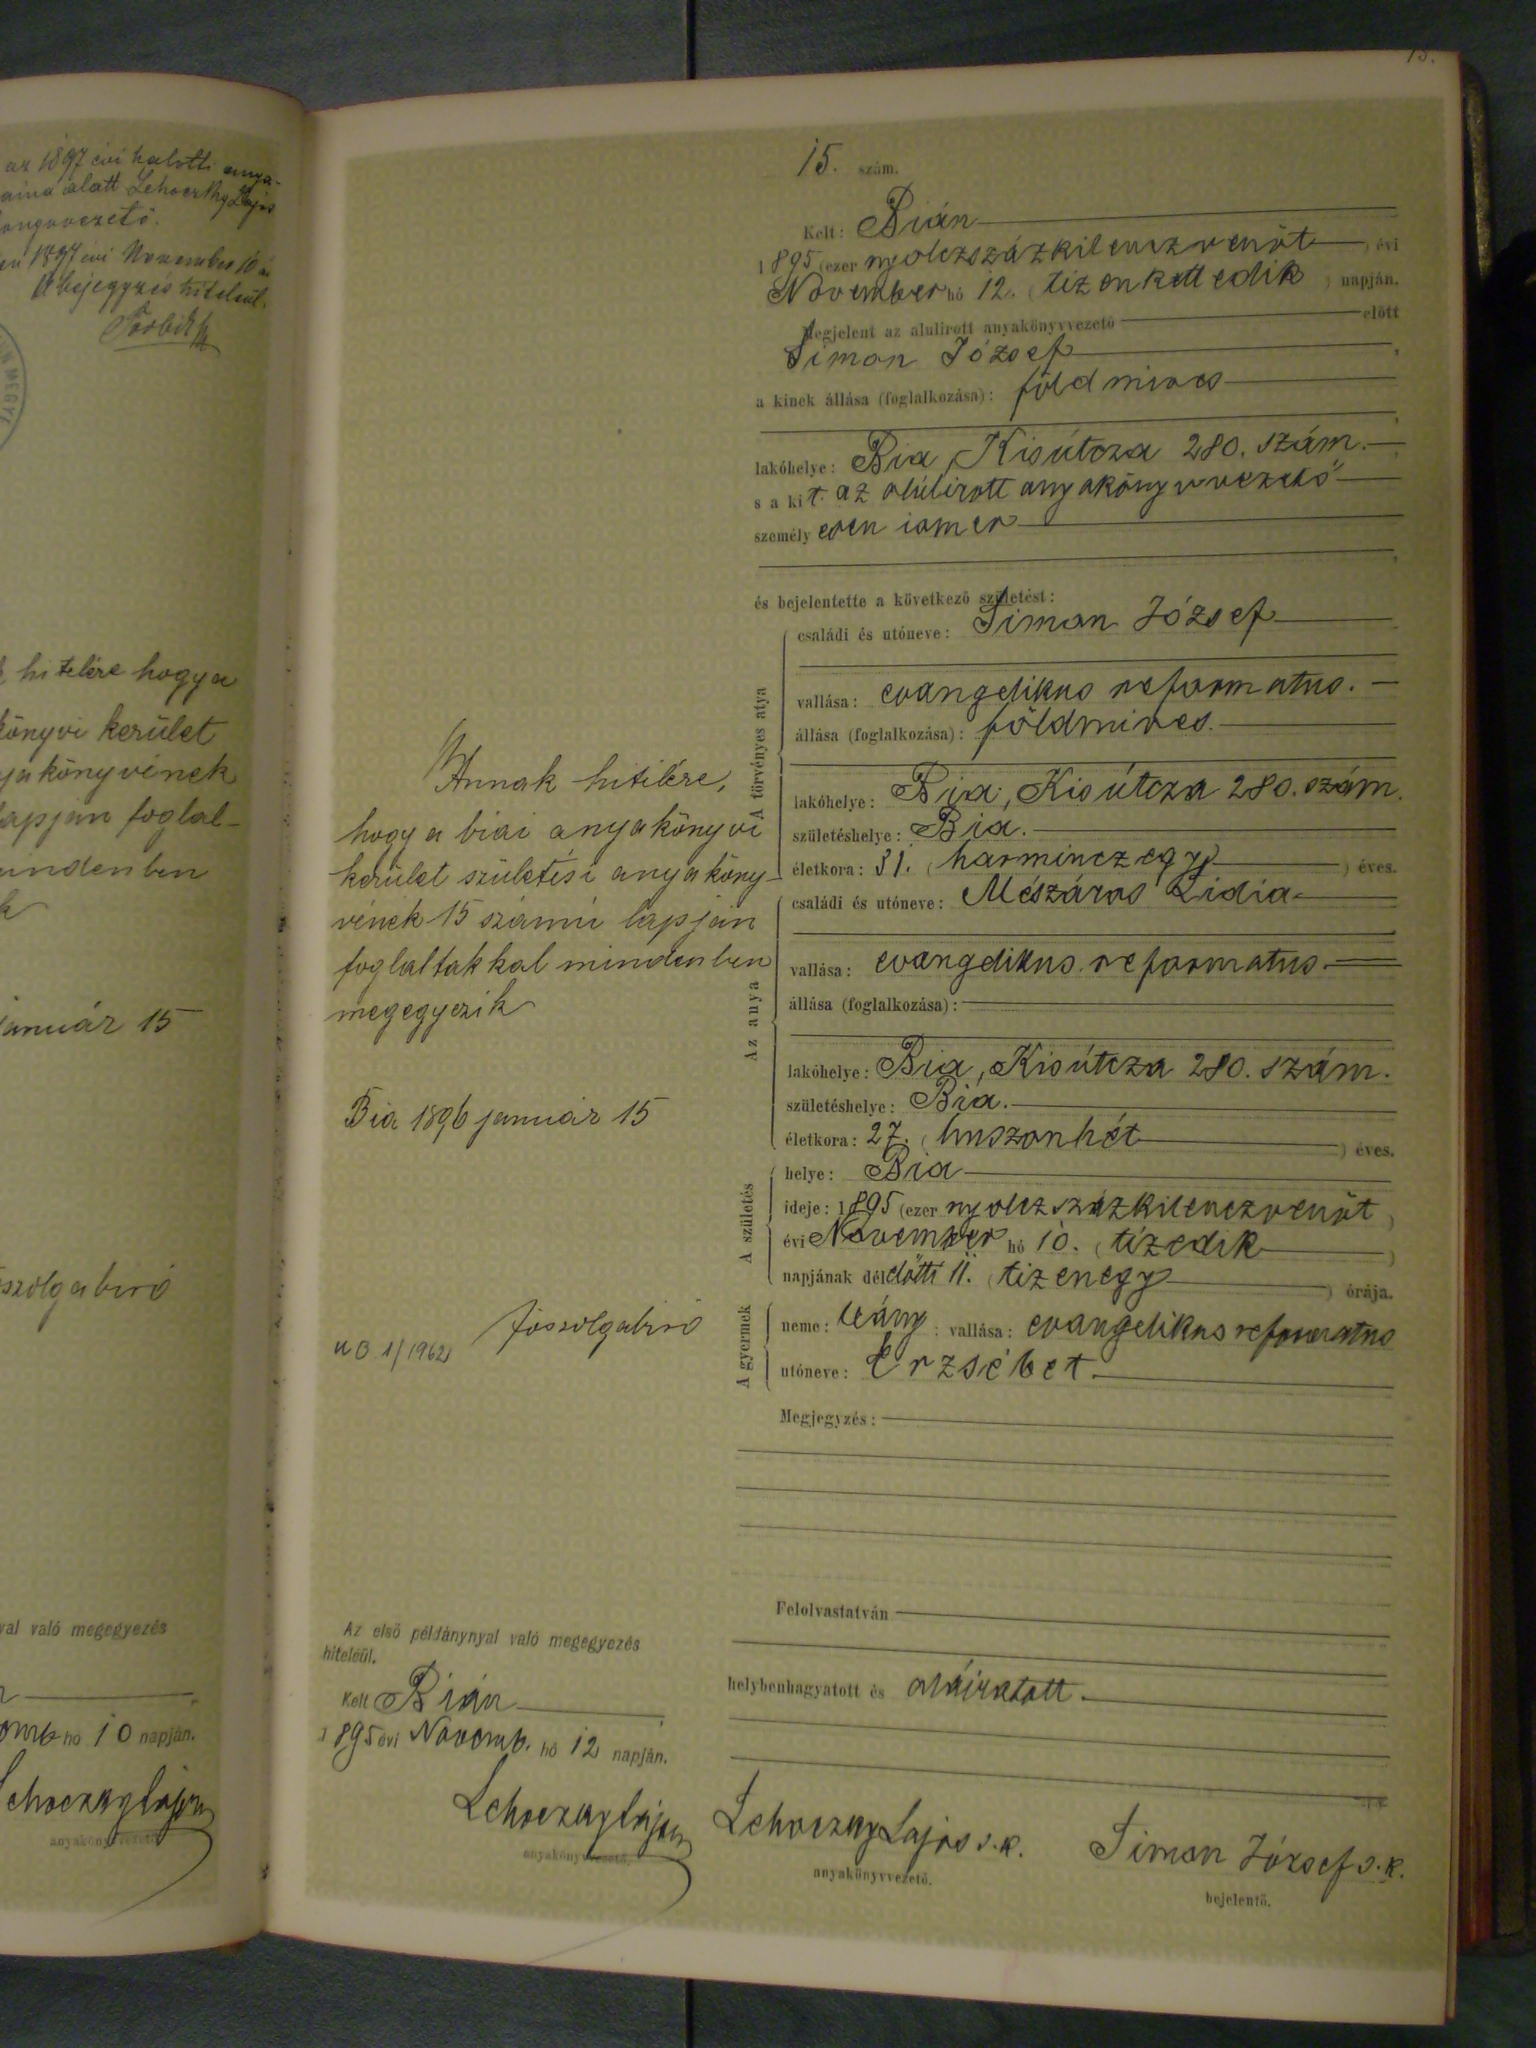 az 1897 évi halotti anya-
alatt Lehoczky Lajos
1897 évi November 10 én
A bejegyzés hiteléül.
hitelére hogy a
könyvi kerület
yakönyvének
lapján foglal-
mindenben
január 15
szolgabiró
val való megegyezés
hó 10 napján.
Lehoczky Lajos
anyakönyvvezető
15.
15. szám.
Kelt: Bián
1895 (ezer nyolczszázkilenczvenöt) évi
November hó 12. (tizenkettedik) napján.
Megjelent az alulirott anyakönyvvezető előtt
Simon József,
a kinek állása (foglalkozása): földmives
lakóhelye: Bia, Kisútcza 280. szám.
s a kit az alúlirott anyakönyvvezető
személyesen ismer
és bejelentette a következő születést:
A törvényes atya
családi és utóneve: Simon József
vallása: evangelikus reformatus.
állása (foglalkozása): földmives.
lakóhelye: Bia, Kisútcza 280. szám.
születéshelye: Bia.
életkora: 31. (harminczegy) éves.
Az anya
családi és utóneve: Mészáros Lidia
vallása: evangelikus reformatus.
állása (foglalkozása):
lakóhelye: Bia, Kisútcza 280. szám.
születéshelye: Bia.
életkora: 27. (huszonhét) éves.
A születés
helye: Bia
ideje: 1895 (ezer nyolczszázkilenczvenöt)
évi November hó 10. (tizedik)
napjának délelőtti 11. (tizenegy) órája.
A gyermek
neme: leány; vallása: evangelikus reformatus
utóneve: Erzsébet.
Megjegyzés:
Felolvastatván
helybenhagyatott és aláiratott.
Lehoczky Lajos s.k.
anyakönyvvezető.
Simon József s.k.
bejelentő.
Annak hitelére,
hogy a biai anyakönyvi
kerület születési anyaköny-
vének 15 számú lapján
foglaltakkal mindenben
megegyezik
Bia 1896 január 15
főszolgabiró
1/1962
Az első példánynyal való megegyezés
hiteléül.
Kelt Bián,
1895 évi Novemb. hó 12 napján.
Lehoczky Lajos
anyakönyvvezető.